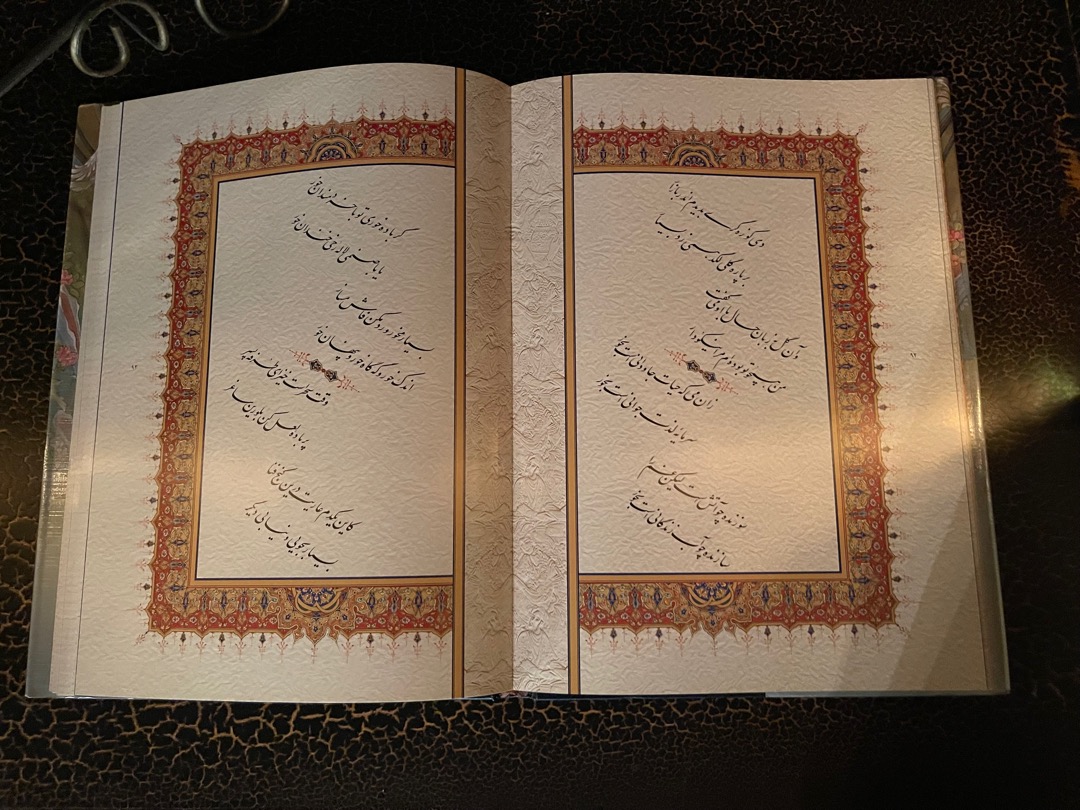 دی کوزه‌گری بدیدم اندر بازار
بر پاره گلی لگد همی زد بسیار
و آن گل بزبان حال با او می‌گفت
من همچو تو بوده‌ام مرا نیکو دار
زان می که حیات جاودانی است بخور
سرمایه لذت جوانی است بخور
سوزنده چو آتش است لیکن غم را
سازنده چو آب زندگانی است بخور
گر باده خوری تو با خردمندان خور
یا با صنمی لاله رخی خندان خور
بسیار مخور ورد مکن فاش مساز
اندک خور و گه گاه خور و پنهان خور
وقت سحر است خیز ای طرفه پسر
پر باده لعل کن بلورین ساغر
کاین یکدم عاریت در این کنج فنا
بسیار بجویی و نیابی دیگر